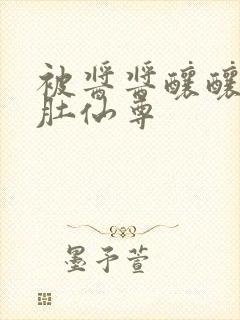 被酱酱酿酿
肚仙尊
墨予萱